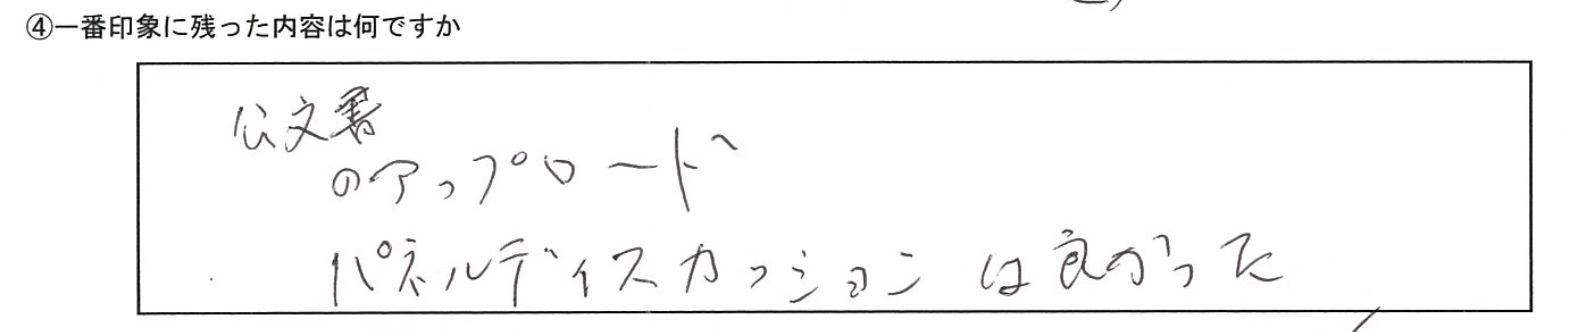 ④一番印象に残った内容は何ですか
公文書
のアップロード
パネルディスカッションは良かった